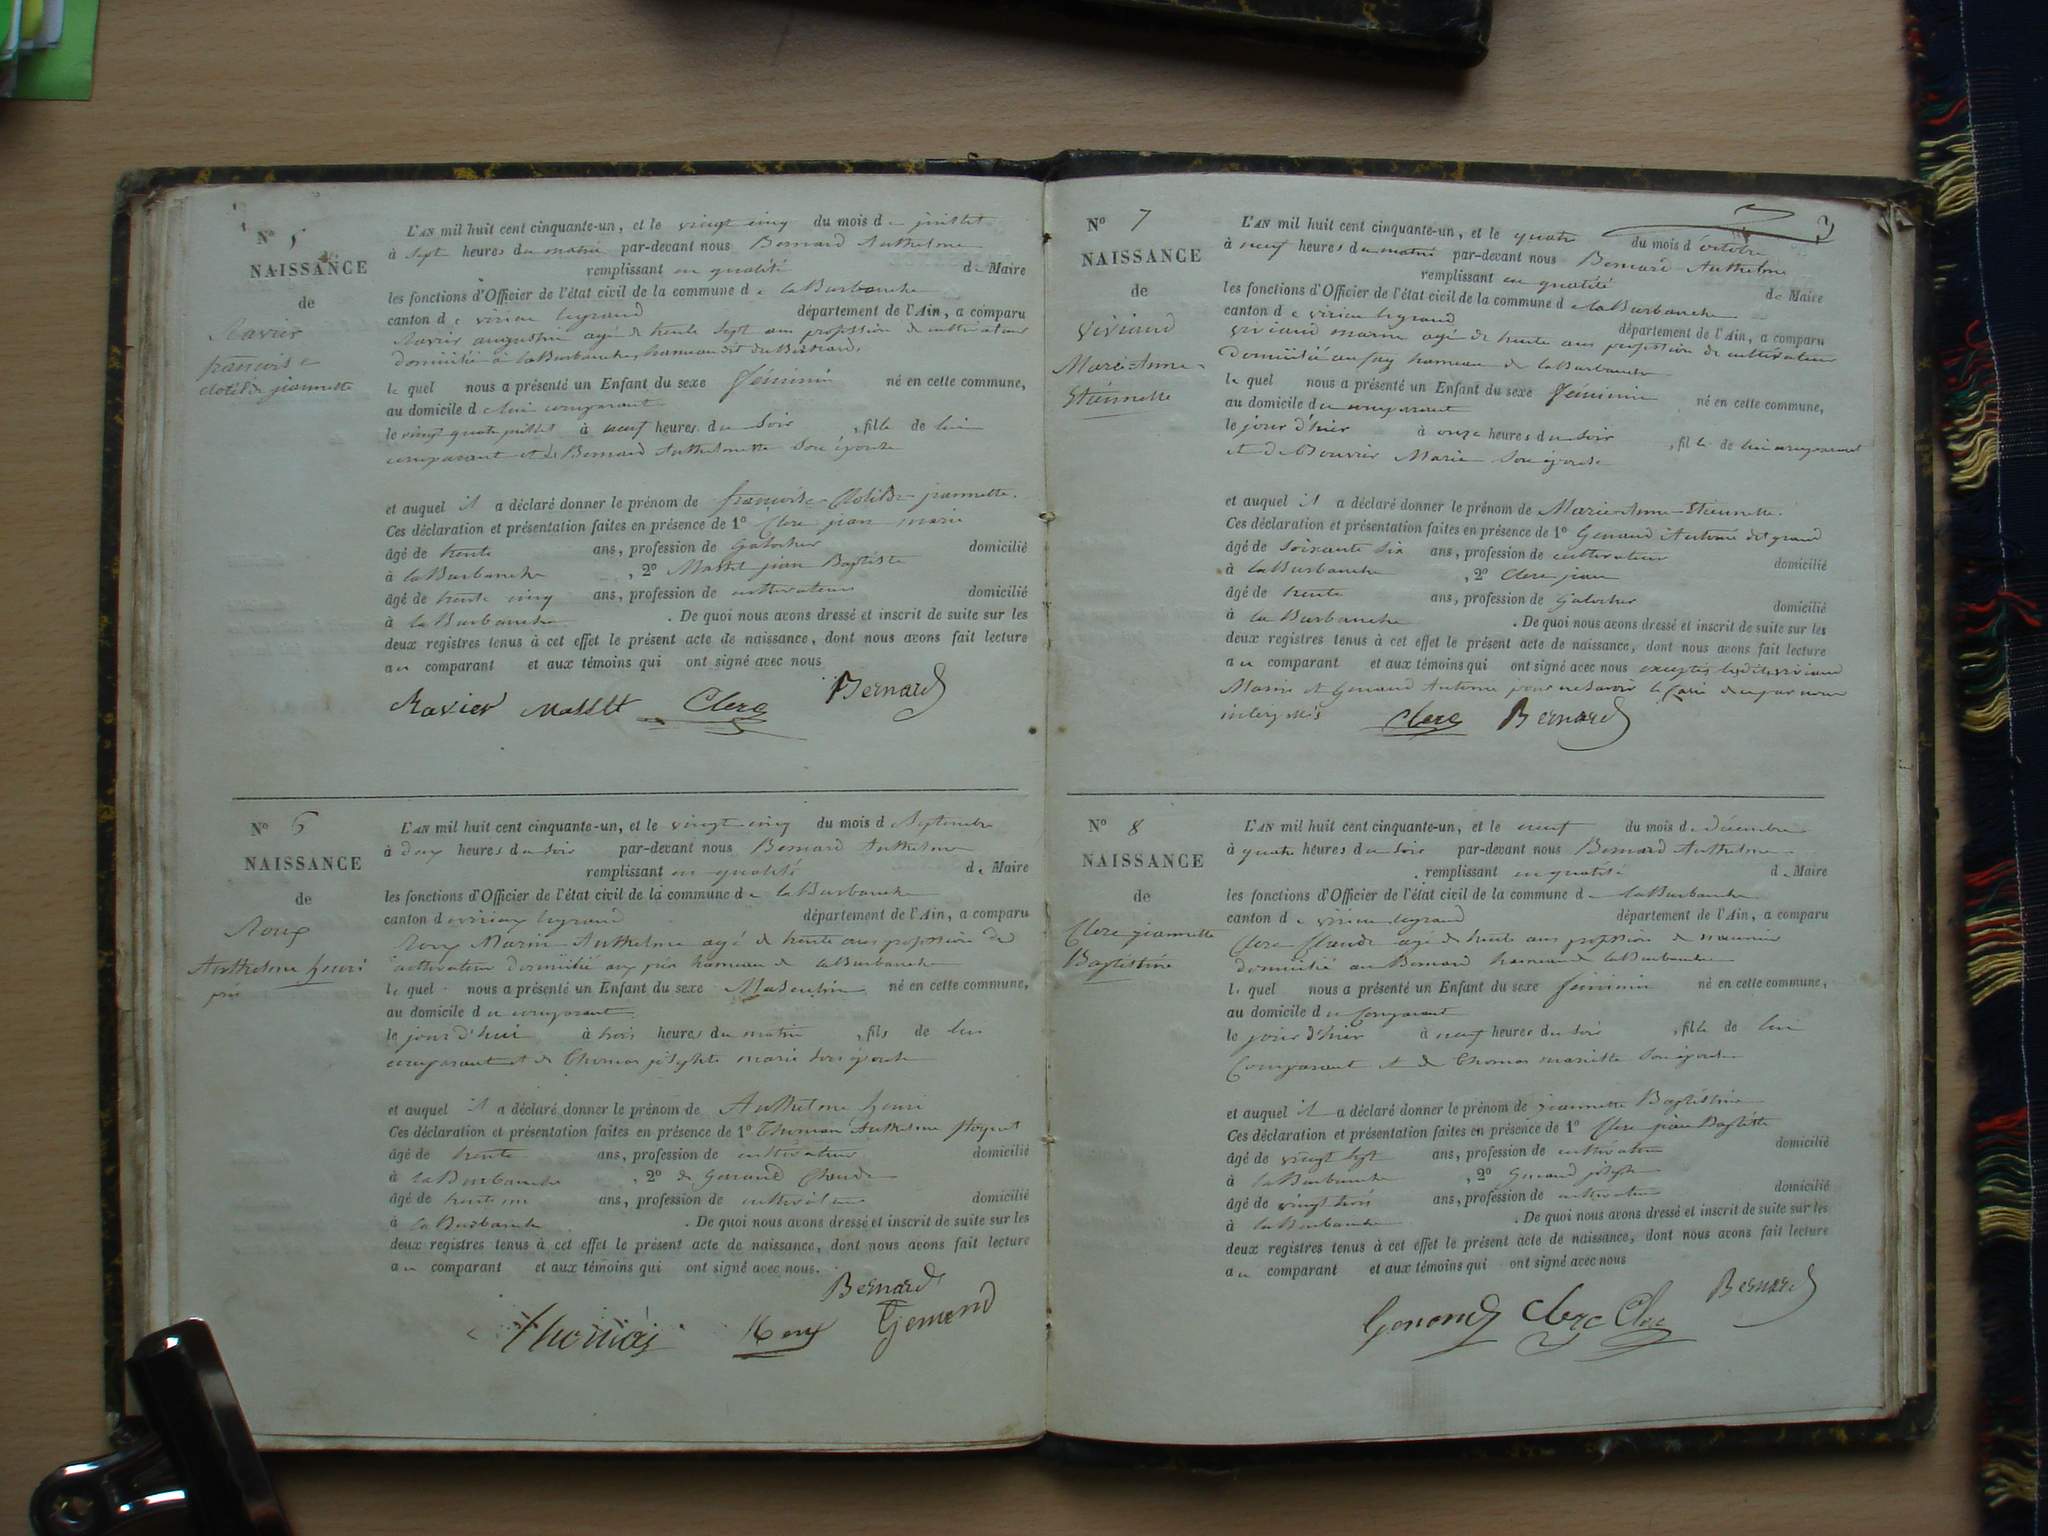 N° 5
NAISSANCE
de
Ravier
françoise
clotilde jeannette
L'AN mil huit cent cinquante-un, et le vingt cinq du mois de juillet
à sept heures du matin par-devant nous Bernard Anthelme
remplissant en qualité de Maire
les fonctions d'Officier de l'état civil de la commune de la Burbanche
canton de virieu legrand département de l'Ain, a comparu
Ravier augustin agé de trente sept ans profession de cultivateur
domicilié à la Burbanche, hameau dit du
le quel nous a présenté un Enfant du sexe féminin né en cette commune,
au domicile de lui comparant
le vingt quatre juillet à neuf heures du soir , fille de lui
comparant et de Bernard Anthelmette son épouse
et auquel il a déclaré donner le prénom de françoise Clotilde jeannette.
Ces déclaration et présentation faites en présence de 1° Clerc jean marie
âgé de trente ans, profession de Galocher domicilié
à la Burbanche , 2° Masset jean Baptiste
âgé de trente cinq ans, profession de cultivateur domicilié
à la Burbanche . De quoi nous avons dressé et inscrit de suite sur les
deux registres tenus à cet effet le présent acte de naissance, dont nous avons fait lecture
au comparant et aux témoins qui ont signé avec nous
Ravier Masset Clerc Bernard
N° 6
NAISSANCE
de
Roux
Anthelme henri
L'AN mil huit cent cinquante-un, et le vingt cinq du mois de Septembre
à deux heures du soir par-devant nous Bernard Anthelme
remplissant en qualité de Maire
les fonctions d'Officier de l'état civil de la commune de la Burbanche
canton de virieux legrand département de l'Ain, a comparu
Roux Marin Anthelme agé de trente ans profession de
cultivateur domicilié hameau de la Burbanche
le quel nous a présenté un Enfant du sexe Masculin né en cette commune,
au domicile du comparant
le jour d'hui à trois heures du matin , fils de lui
comparant et de Thomas josephte marie son épouse
et auquel il a déclaré donner le prénom de Anthelme henri
Ces déclaration et présentation faites en présence de 1° Thomas Anthelme
âgé de trente ans, profession de cultivateur domicilié
à la Burbanche , 2° de Genand Claude
âgé de trente un ans, profession de cultivateur domicilié
à la Burbanche . De quoi nous avons dressé et inscrit de suite sur les
deux registres tenus à cet effet le présent acte de naissance, dont nous avons fait lecture
au comparant et aux témoins qui ont signé avec nous.
Bernard
Thomas Roux Genend
3
N° 7
NAISSANCE
de
Viviand
Marie-Anne
Etiennette
L'AN mil huit cent cinquante-un, et le quatre du mois d'octobre
à neuf heures du matin par-devant nous Bernard Anthelme
remplissant en qualité de Maire
les fonctions d'Officier de l'état civil de la commune de la Burbanche
canton de virieu legrand département de l'Ain, a comparu
viviand marin agé de trente ans profession de cultivateur
Domicilié au fay hameau de la Burbanche
le quel nous a présenté un Enfant du sexe féminin né en cette commune,
au domicile du comparant
le jour d'hier à onze heures du soir , fille de lui comparant
et de Bouvier Marie son épouse
et auquel il a déclaré donner le prénom de Marie-Anne-Etiennette.
Ces déclaration et présentation faites en présence de 1° Genand Antoine dit grand
âgé de soixante six ans, profession de cultivateur domicilié
à la Burbanche , 2° Clerc jean
âgé de trente ans, profession de Galocher domicilié
à la Burbanche . De quoi nous avons dressé et inscrit de suite sur les
deux registres tenus à cet effet le présent acte de naissance, dont nous avons fait lecture
au comparant et aux témoins qui ont signé avec nous exceptés lesdits viviand
Marin et Genand Antoine pour ne savoir le faire de par nous
Clerc Bernard
N° 8
NAISSANCE
de
Clerc jeannette
Baptistine
L'AN mil huit cent cinquante-un, et le neuf du mois de décembre
à quatre heures du soir par-devant nous Bernard Anthelme
remplissant en qualité de Maire
les fonctions d'Officier de l'état civil de la commune de la Burbanche
canton de virieu legrand département de l'Ain, a comparu
Clerc Claude agé de trente ans profession de meunier
domicilié au Bernard hameau de la Burbanche
le quel nous a présenté un Enfant du sexe féminin né en cette commune,
au domicile du Comparant
le jour d'hier à neuf heures du soir , fille de lui
Comparant et de Thomas mariette son épouse
et auquel il a déclaré donner le prénom de jeannette Baptistine
Ces déclaration et présentation faites en présence de 1° Clerc jean Baptiste
âgé de vingt sept ans, profession de cultivateur domicilié
à la Burbanche , 2° Genand joseph
âgé de vingt trois ans, profession de cultivateur domicilié
à la Burbanche . De quoi nous avons dressé et inscrit de suite sur les
deux registres tenus à cet effet le présent acte de naissance, dont nous avons fait lecture
au comparant et aux témoins qui ont signé avec nous
Genend Clerc Clerc Bernard